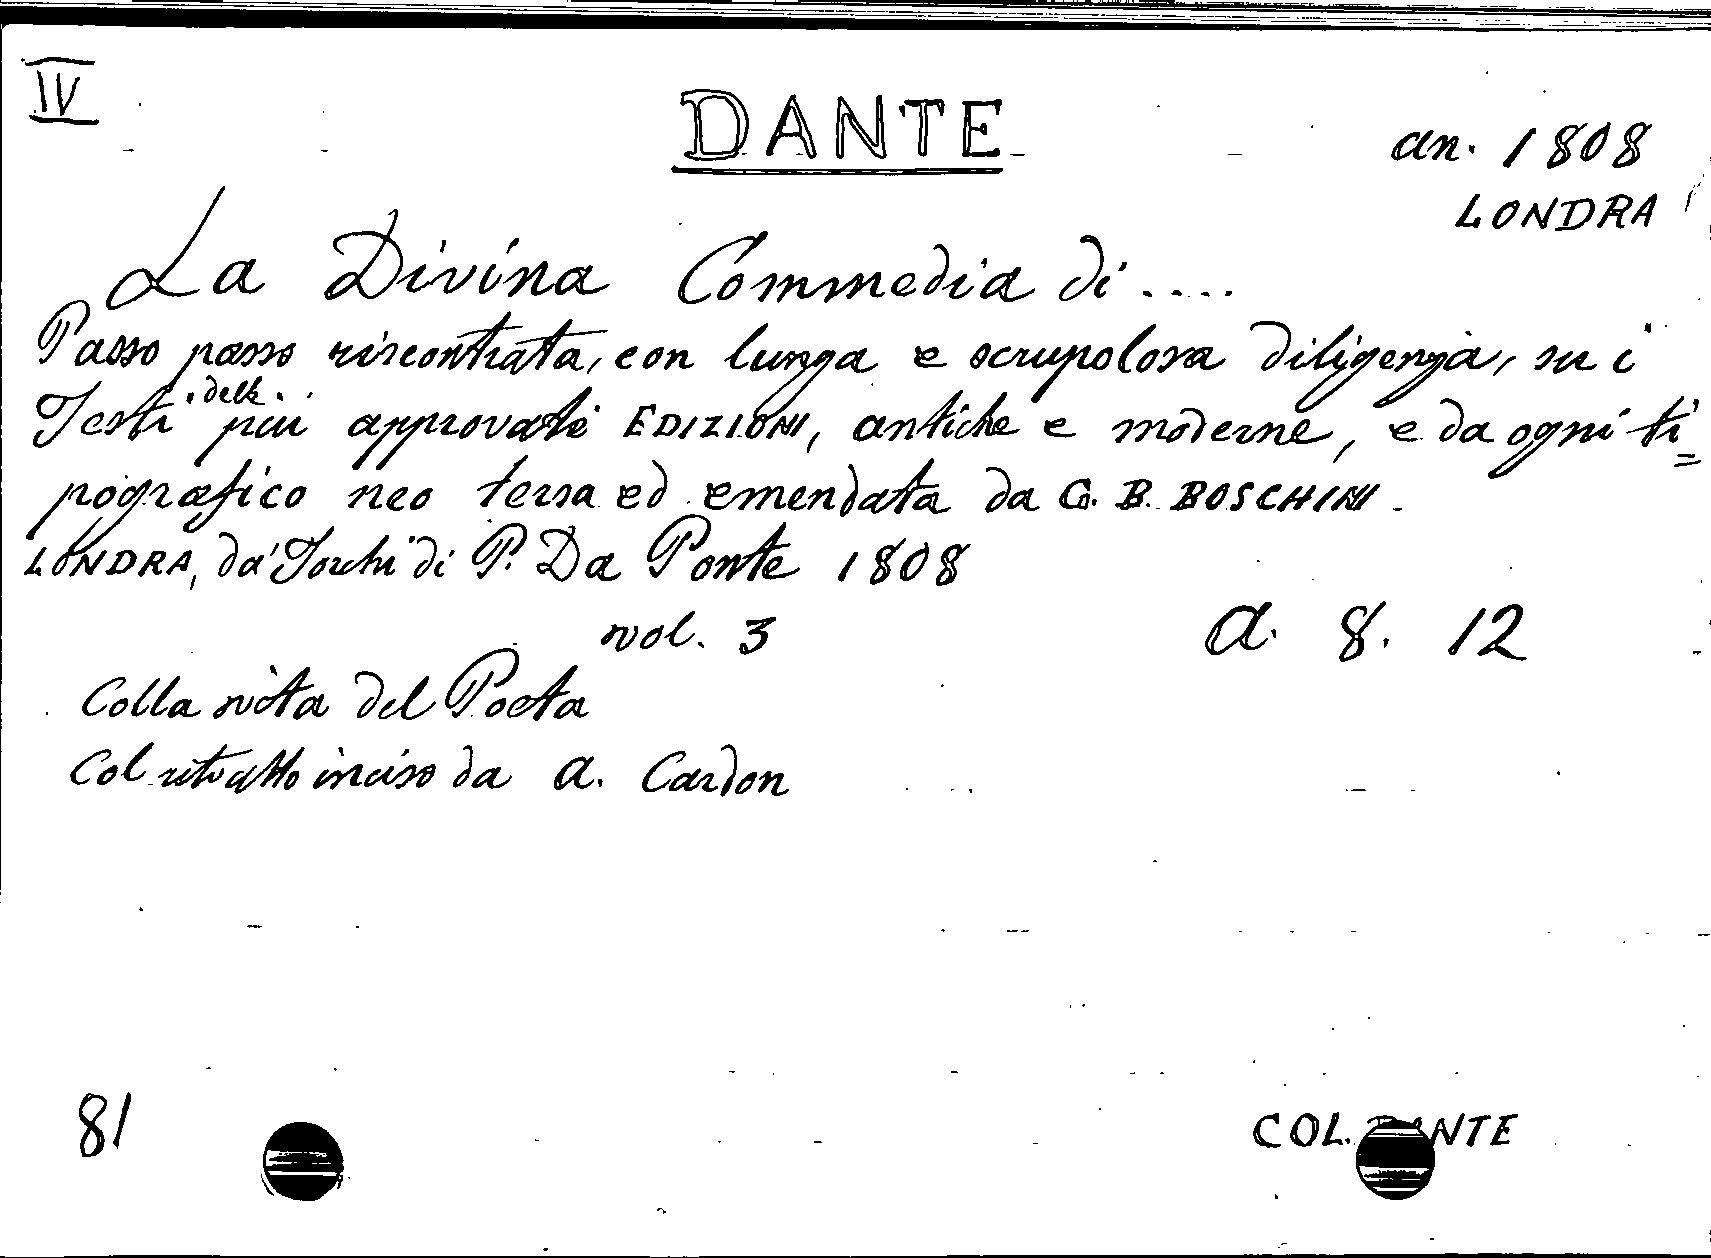 IV
DANTE
an. 1808
LONDRA
La Divina Commedia di ....
Passo passo riscontrata, con lunga e scrupolosa diligenza, su i
Testi delle più approvate EDIZIONI, antiche e moderne, e da ogni ti=
pografico neo tersa ed emendata da G. B. BOSCHINI.
LONDRA, da' Torchi di P. Da Ponte 1808
vol. 3
a. 8. 12
Colla vita del Poeta
Col ritratto inciso da A. Cardon
81
COL. DANTE